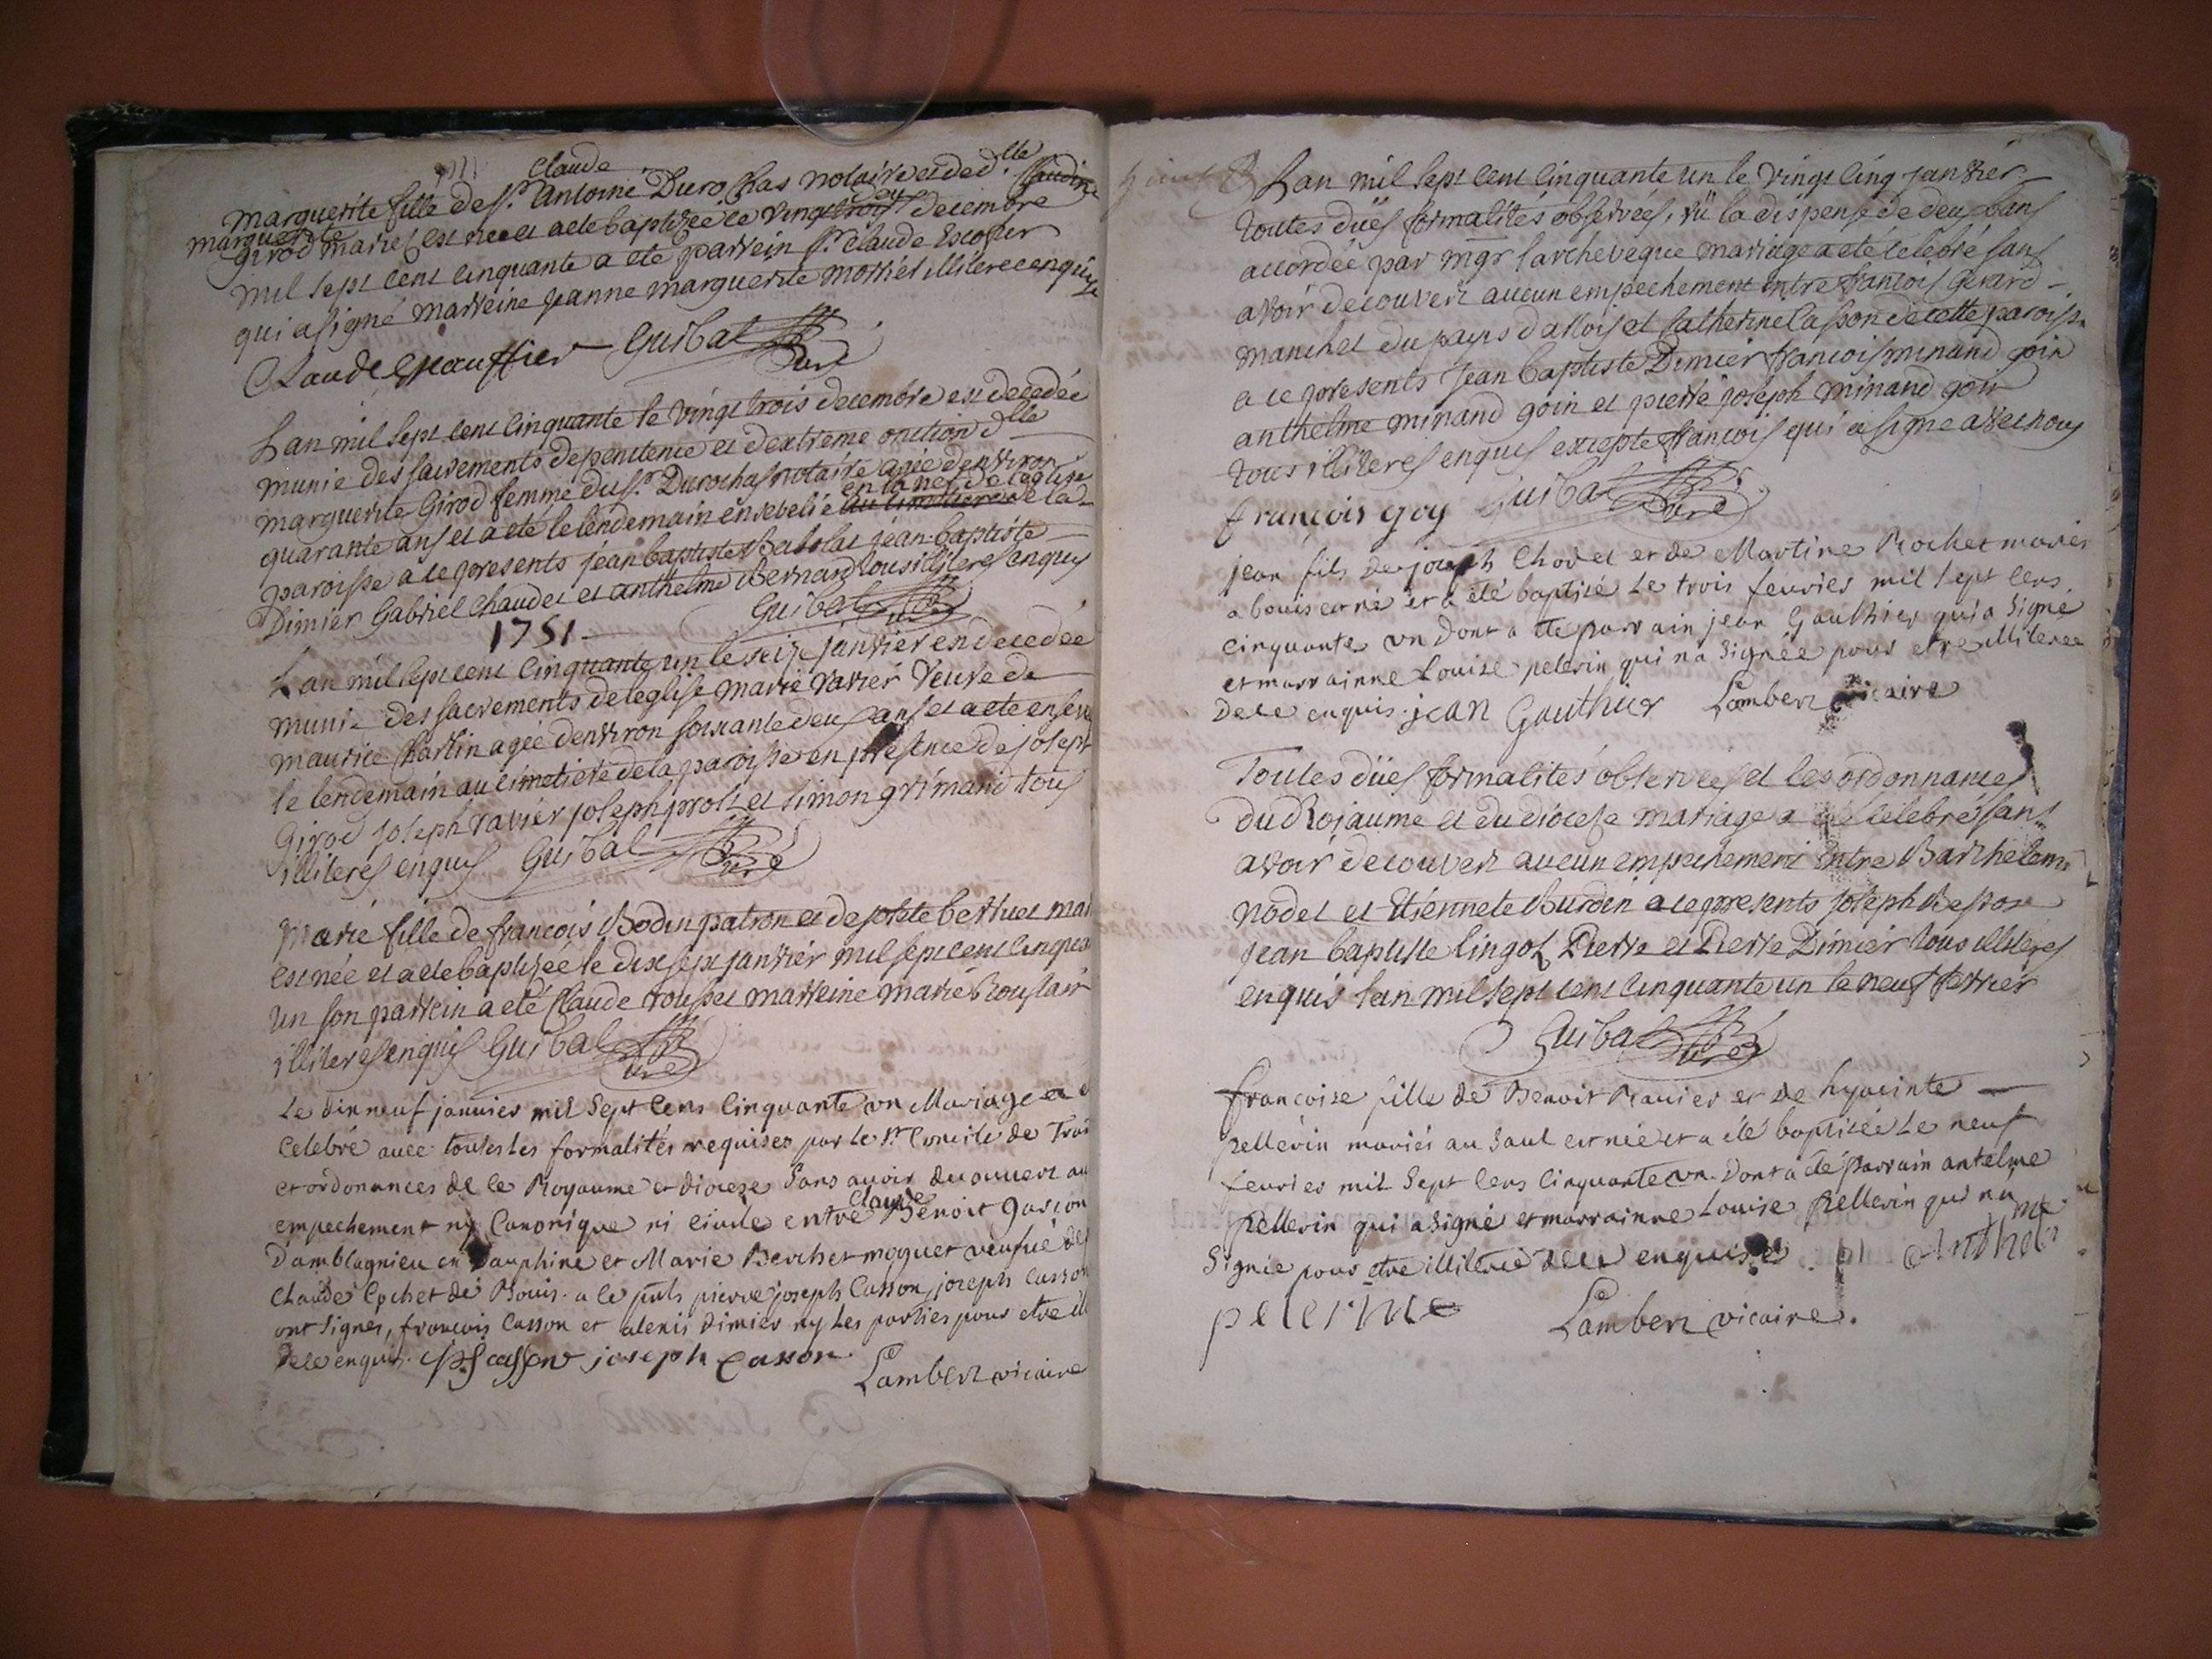 Claude
marguerite fille de Sr. antoine Durochas notaire et de dlle. Claudine
marguerite
deux
girod mariés est nee et a ete baptisée le vingt trois decembre
mil sept cent cinquante a ete parrein Sr. claude Escofier
qui a signé marreine jeanne marguerite morriel illiteree enquise
Claude Guibal
Curé
Lan mil sept cent cinquante le vingt trois decembre est decedée
munie des sacrements de penitence et dextreme onction dlle
marguerite Girod femme du Sr. Durochas notaire agée denviron
en la nef de leglise
quarante ans et a eté le lendemain ensevelie au cimetiere de la
paroisse a ce presents jean baptiste Babolat jean baptiste
Dimier Gabriel Chaudet et anthelme bernard tous illiteres enquis
Guibal Curé
1751
Lan mil sept cent cinquante un le seize janvier est decedée
munie des sacrements de leglise marie ravier veuve de
maurice Charlin agée denviron soixante deux ans et a ete enseve
le lendemain au cimetiere de la paroisse en presence de joseph
Girod joseph ravier joseph prost et simon grimand tous
illiteres enquis Guibal Curé
marie fille de francois Bodin patron et de josete berthet mar
est née et a ete baptisée le dix sept janvier mil sept cent cinquan
un son parrein a eté Claude rousset marreine marie
illiteres enquis Guibal Curé
Le dix neuf janvier mil sept cens cinquante un Mariage a e
celebré avec toutes les formalités requises par le St. Concile de Tran
et ordonnances de ce Royaume et diocese sans avoir decouvert au
claude
empechement ny Canonique ni civile entre Benoit gascon
damblagnieu en Dauphine et Marie Berchet moquet veufue de
Claude Cochet de Bouis. a ce pnts pierre joseph Casson, joseph casson
ont signes, francois Casson et alexis dimier ny les parties pour etre ill
de ce enquis. casson joseph casson.
Lambert vicaire
Lan mil sept cent cinquante un le vingt cinq janvier
toutes duës formalités observées, vü la dispense de deux bans
accordée par mgr larcheveque mariage a eté celebré sans
avoir decouvert aucun empechement entre francois Gerard
manchet du pays et Catherine Casson de cette paroisse
a ce presents jean baptiste Dimier francois minand goin
anthelme minand goin et pierre joseph minand goin
tous illiteres enquis excepte francois qui a signe avec nous
françois goy Guibal Curé
jean fils de joseph Chodet et de Martine Rochet mariés
a bouis est né et a été baptisé le trois feurier mil sept cens
cinquante un dont a ete parrain jean Gauthier qui a signé
et marrainne Louise pelerin qui na signée pour etre illiteree
de ce enquis. jean Gauthier Lambert vicaire
Toutes düës formalités observées et les ordonnances
du Roiaume et du diocese mariage a eté celebré sans
avoir decouvert aucun empechement entre Barthelemi
nodet et Etiennete Bourdin a ce presents joseph Besson
jean baptiste lingot Pierre et Pierre Dimier tous illiteres
enquis lan mil sept cent cinquante un le neuf fevrier
Guibal Curé
francoise fille de Benoit Ravier et de hyacinte
pellerin mariés au Saul est née et a été baptisée le neuf
feurier mil sept cens cinquante un. dont a été parrain antelme
pellerin qui a signé et marrainne Louise Pellerin qui na
signée pour etre illiteree de ce enquise. Anthelme
pelerine
Lambert vicaire.